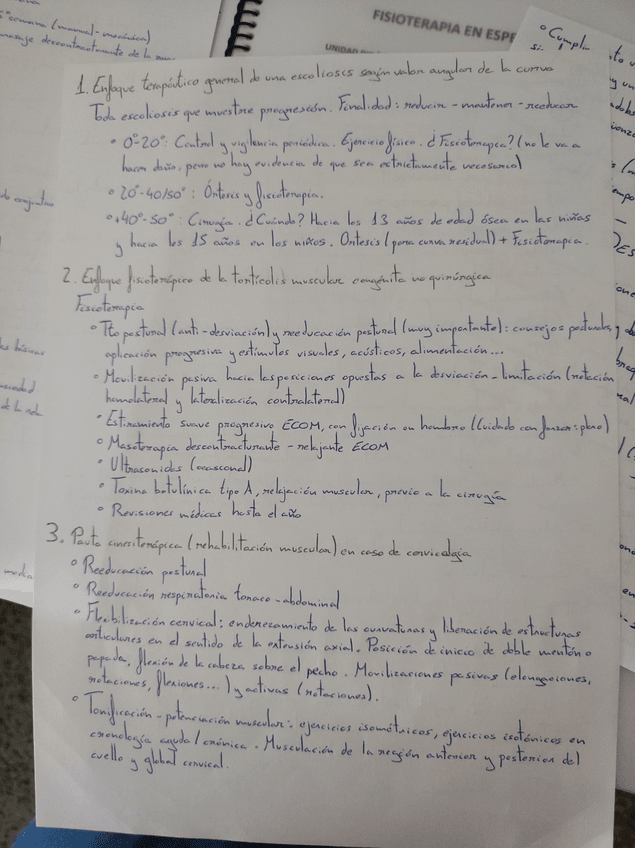 semana (manual-mecánica)
masaje descontracturante de la
FISIOTERAPIA EN ESPE
UNIDAD
Cumplim
1. Enfoque terapéutico general de una escoliosis según valor angular de la curva
Toda escoliosis que muestre progresión. Finalidad: reducir - mantener - reeducar
° 0°-20°: Control y vigilancia periódica. Ejercicio físico. ¿Fisioterapia? (no le va a
hacer daño, pero no hay evidencia de que sea estrictamente necesario)
° 20°-40/50°: Órtesis y fisioterapia.
° +40°-50°: Cirugía. ¿Cuándo? Hacia los 13 años de edad ósea en las niñas
y hacia los 15 años en los niños. Ortesis (para curva residual) + Fisioterapia.
2. Enfoque fisioterápico de la tortícolis muscular congénita no quirúrgica
Fisioterapia
° Tto postural (anti-desviación) y reeducación postural (muy importante): consejos posturales,
aplicación progresiva y estímulos visuales, acústicos, alimentación...
° Movilización pasiva hacia las posiciones opuestas a la desviación-limitación (rotación
homolateral y lateralización contralateral)
° Estiramiento suave progresivo ECOM, con fijación en hombro (Cuidado con forzar: plexo)
° Masoterapia descontracturante - relajante ECOM
° Ultrasonidos (ocasional)
° Toxina botulínica tipo A, relajación muscular, previo a la cirugía
° Revisiones médicas hasta el año
3. Pauta cinesiterápica (rehabilitación muscular) en caso de cervicalgia
° Reeducación postural
° Reeducación respiratoria toraco-abdominal
° Flexibilización cervical: enderezamiento de las curvaturas y liberación de estructuras
articulares en el sentido de la extensión axial. Posición de inicio de doble mentón o
papada, flexión de la cabeza sobre el pecho. Movilizaciones pasivas (elongaciones,
rotaciones, flexiones...) y activas (rotaciones).
° Tonificación - potenciación muscular: ejercicios isométricos, ejercicios isotónicos en
cronología aguda/crónica. Musculación de la región anterior y posterior del
cuello y global cervical.